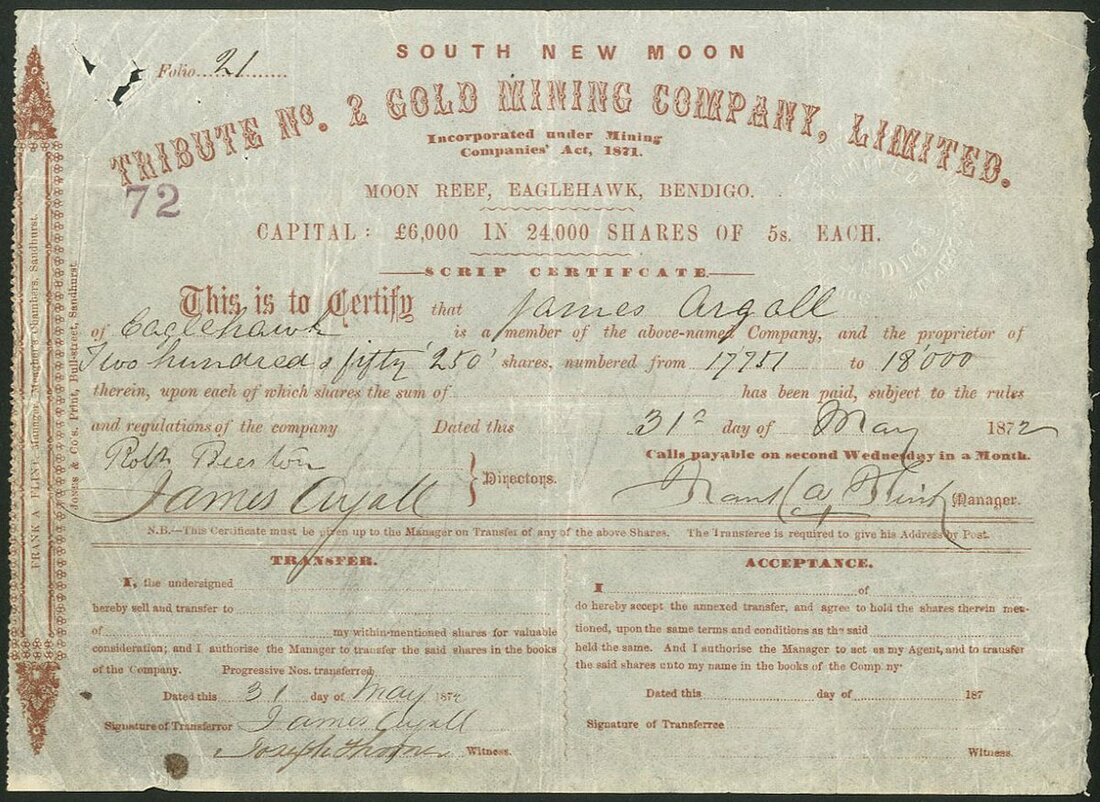 Folio 21
SOUTH NEW MOON
TRIBUTE No. 2 GOLD MINING COMPANY, LIMITED.
Incorporated under Mining
Companies' Act, 1871.
72
MOON REEF, EAGLEHAWK, BENDIGO.
CAPITAL: £6,000 IN 24,000 SHARES OF 5s. EACH.
SCRIP CERTIFCATE
This is to Certify that James Argall
of Eaglehawk is a member of the above-named Company, and the proprietor of
Two hundred & fifty '250' shares, numbered from 17751 to 18000
therein, upon each of which shares the sum of has been paid, subject to the rules
and regulations of the company Dated this 31st day of May 1872
Calls payable on second Wednesday in a Month.
Robt Beeston
James Argall } Directors.
Frank A Flint Manager.
N.B.—This Certificate must be given up to the Manager on Transfer of any of the above Shares. The Transferee is required to give his Address by Post.
TRANSFER.
I, the undersigned
hereby sell and transfer to
of my within-mentioned shares for valuable
consideration; and I authorise the Manager to transfer the said shares in the books
of the Company. Progressive Nos. transferred
Dated this 31 day of May 1872
Signature of Transferror James Argall
Joseph Witness.
ACCEPTANCE.
I of
do hereby accept the annexed transfer, and agree to hold the shares therein men-
tioned, upon the same terms and conditions as the said
held the same. And I authorise the Manager to act as my Agent, and to transfer
the said shares unto my name in the books of the Company
Dated this day of 187
Signature of Transferree
Witness.
FRANK A FLINT, Manager, Meagher's Chambers, Sandhurst.
JONES & Co's. Print, Bull-street, Sandhurst.